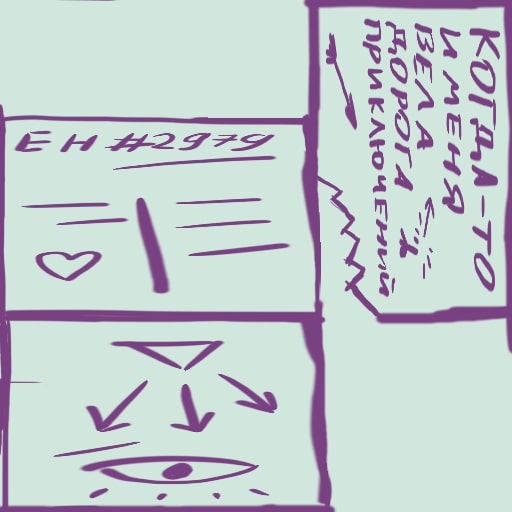 ЕН #2979
КОГДА-ТО
И МЕНЯ
ВЕЛА
ДОРОГА
ПРИКЛЮЧЕНИЙ